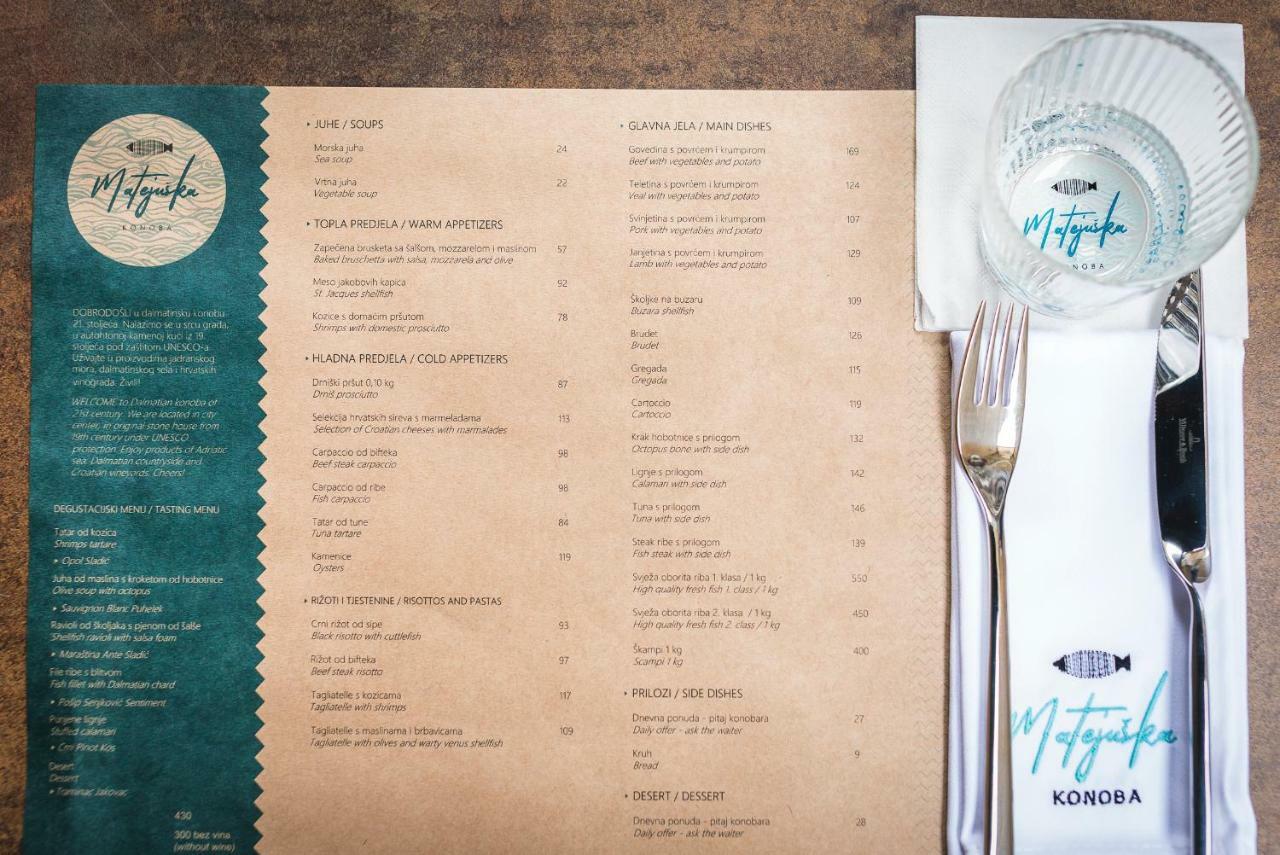 Matejuška
KONOBA
DOBRODOŠLI u dalmatinsku konobu
21. stoljeća. Nalazimo se u srcu grada,
u autohtonoj kamenoj kući iz 19.
stoljeća pod zaštitom UNESCO-a.
Uživajte u proizvodima jadranskog
mora, dalmatinskog sela i hrvatskih
vinograda. Živili!
WELCOME to Dalmatian konoba of
21st century. We are located in city
center, in original stone house from
19th century under UNESCO
protection. Enjoy products of Adriatic
sea, Dalmatian countryside and
Croatian vineyards. Cheers!
DEGUSTACIJSKI MENU / TASTING MENU
Tatar od kozica
Shrimps tartare
• Opol Sladić
Juha od maslina s kroketom od hobotnice
Olive soup with octopus
• Sauvignon Blanc Puhelek
Ravioli od školjaka s pjenom od šalše
Shellfish ravioli with salsa foam
• Maraština Ante Sladić
File ribe s blitvom
Fish fillet with Dalmatian chard
• Pošip Senjković Sentiment
Punjene lignje
Stuffed calamari
• Crni Pinot Kos
Desert
Dessert
• Traminac Jakovac
430
300 bez vina
(without wine)
JUHE / SOUPS
Morska juha 24
Sea soup
Vrtna juha 22
Vegetable soup
TOPLA PREDJELA / WARM APPETIZERS
Zapečena brusketa sa šalšom, mozzarelom i maslinom 57
Baked bruschetta with salsa, mozzarela and olive
Meso jakobovih kapica 92
St. Jacques shellfish
Kozice s domaćim pršutom 78
Shrimps with domestic prosciutto
HLADNA PREDJELA / COLD APPETIZERS
Drniški pršut 0,10 kg 87
Drniš prosciutto
Selekcija hrvatskih sireva s marmeladama 113
Selection of Croatian cheeses with marmalades
Carpaccio od bifteka 98
Beef steak carpaccio
Carpaccio od ribe 98
Fish carpaccio
Tatar od tune 84
Tuna tartare
Kamenice 119
Oysters
RIŽOTI I TJESTENINE / RISOTTOS AND PASTAS
Crni rižot od sipe 93
Black risotto with cuttlefish
Rižot od bifteka 97
Beef steak risotto
Tagliatelle s kozicama 117
Tagliatelle with shrimps
Tagliatelle s maslinama i brbavicama 109
Tagliatelle with olives and warty venus shellfish
GLAVNA JELA / MAIN DISHES
Govedina s povrćem i krumpirom 169
Beef with vegetables and potato
Teletina s povrćem i krumpirom 124
Veal with vegetables and potato
Svinjetina s povrćem i krumpirom 107
Pork with vegetables and potato
Janjetina s povrćem i krumpirom 129
Lamb with vegetables and potato
Školjke na buzaru 109
Buzara shellfish
Brudet 126
Brudet
Gregada 115
Gregada
Cartoccio 119
Cartoccio
Krak hobotnice s prilogom 132
Octopus bone with side dish
Lignje s prilogom 142
Calamari with side dish
Tuna s prilogom 146
Tuna with side dish
Steak ribe s prilogom 139
Fish steak with side dish
Svježa oborita riba 1. klasa / 1 kg 550
High quality fresh fish 1. class / 1 kg
Svježa oborita riba 2. klasa / 1 kg 450
High quality fresh fish 2. class / 1 kg
Škampi 1 kg 400
Scampi 1 kg
PRILOZI / SIDE DISHES
Dnevna ponuda - pitaj konobara 27
Daily offer - ask the waiter
Kruh 9
Bread
DESERT / DESSERT
Dnevna ponuda - pitaj konobara 28
Daily offer - ask the waiter
Matejuška
KONOBA
Matejuška
KONOBA